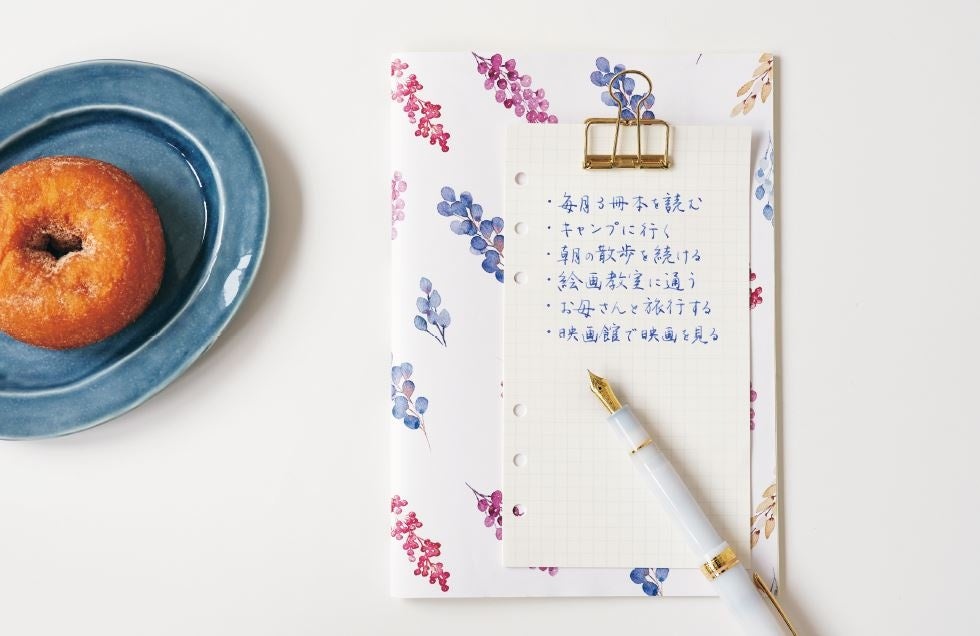 ・毎月3冊本を読む
・キャンプに行く
・朝の散歩を続ける
・絵画教室に通う
・お母さんと旅行する
・映画館で映画を見る